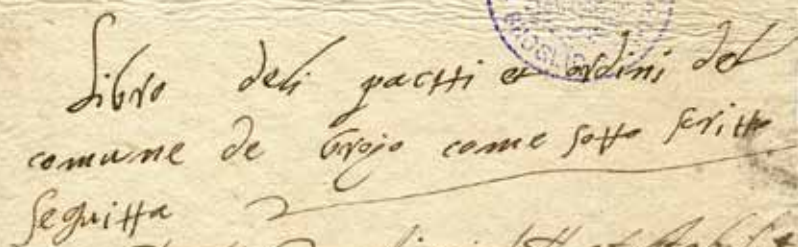 BROGLIO
Libro deli pactti et ordini del
comune de Brojo come sotto scritto
seguitta